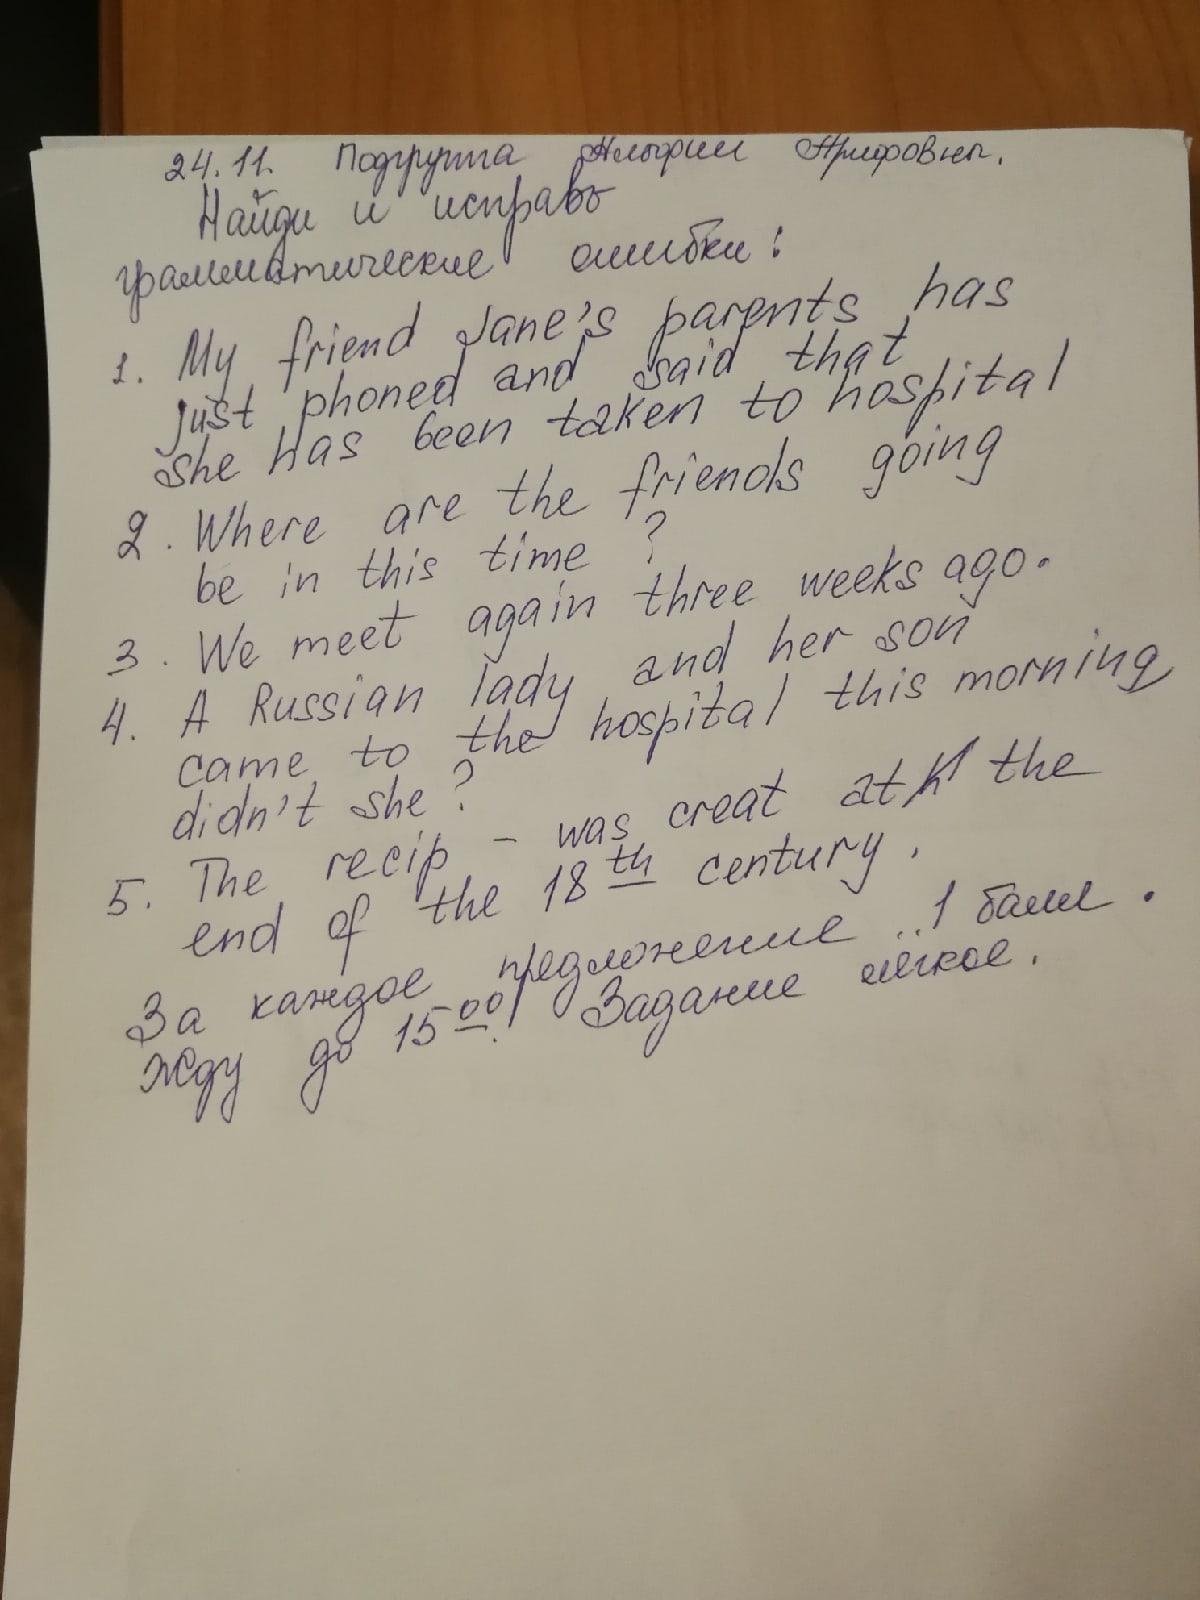 24.11. Подгруппа Альфии Арифовны.
Найди и исправь
грамматические ошибки:
1. My friend Jane's parents has
just phoned and said that
she has been taken to hospital
2. Where are the friends going
be in this time ?
3. We meet again three weeks ago.
4. A Russian lady and her son
came to the hospital this morning
didn't she ?
5. The recip - was creat at the
end of the 18th century.
За каждое предложение .. 1 балл.
Жду до 15 00! Задание лёгкое.